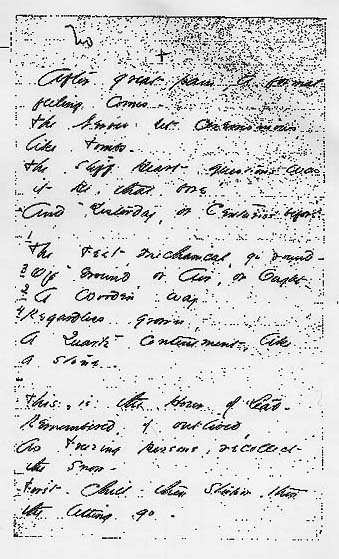 No
+
After great pain, a formal
feeling comes -
The Nerves sit Ceremonious
like Tombs -
The stiff Heart questions was
it He, that bore
And Yesterday, or Centuries before
1 The Feet, mechanical, go round -
3 Of Ground, or Air, or Ought -
2 A Wooden way
4 Regardless grown,
A Quartz contentment, like
a stone -
This is the Hour of Lead -
Remembered, if outlived,
As Freezing persons, recollect
the Snow -
First - Chill - then Stupor - then
the letting go -